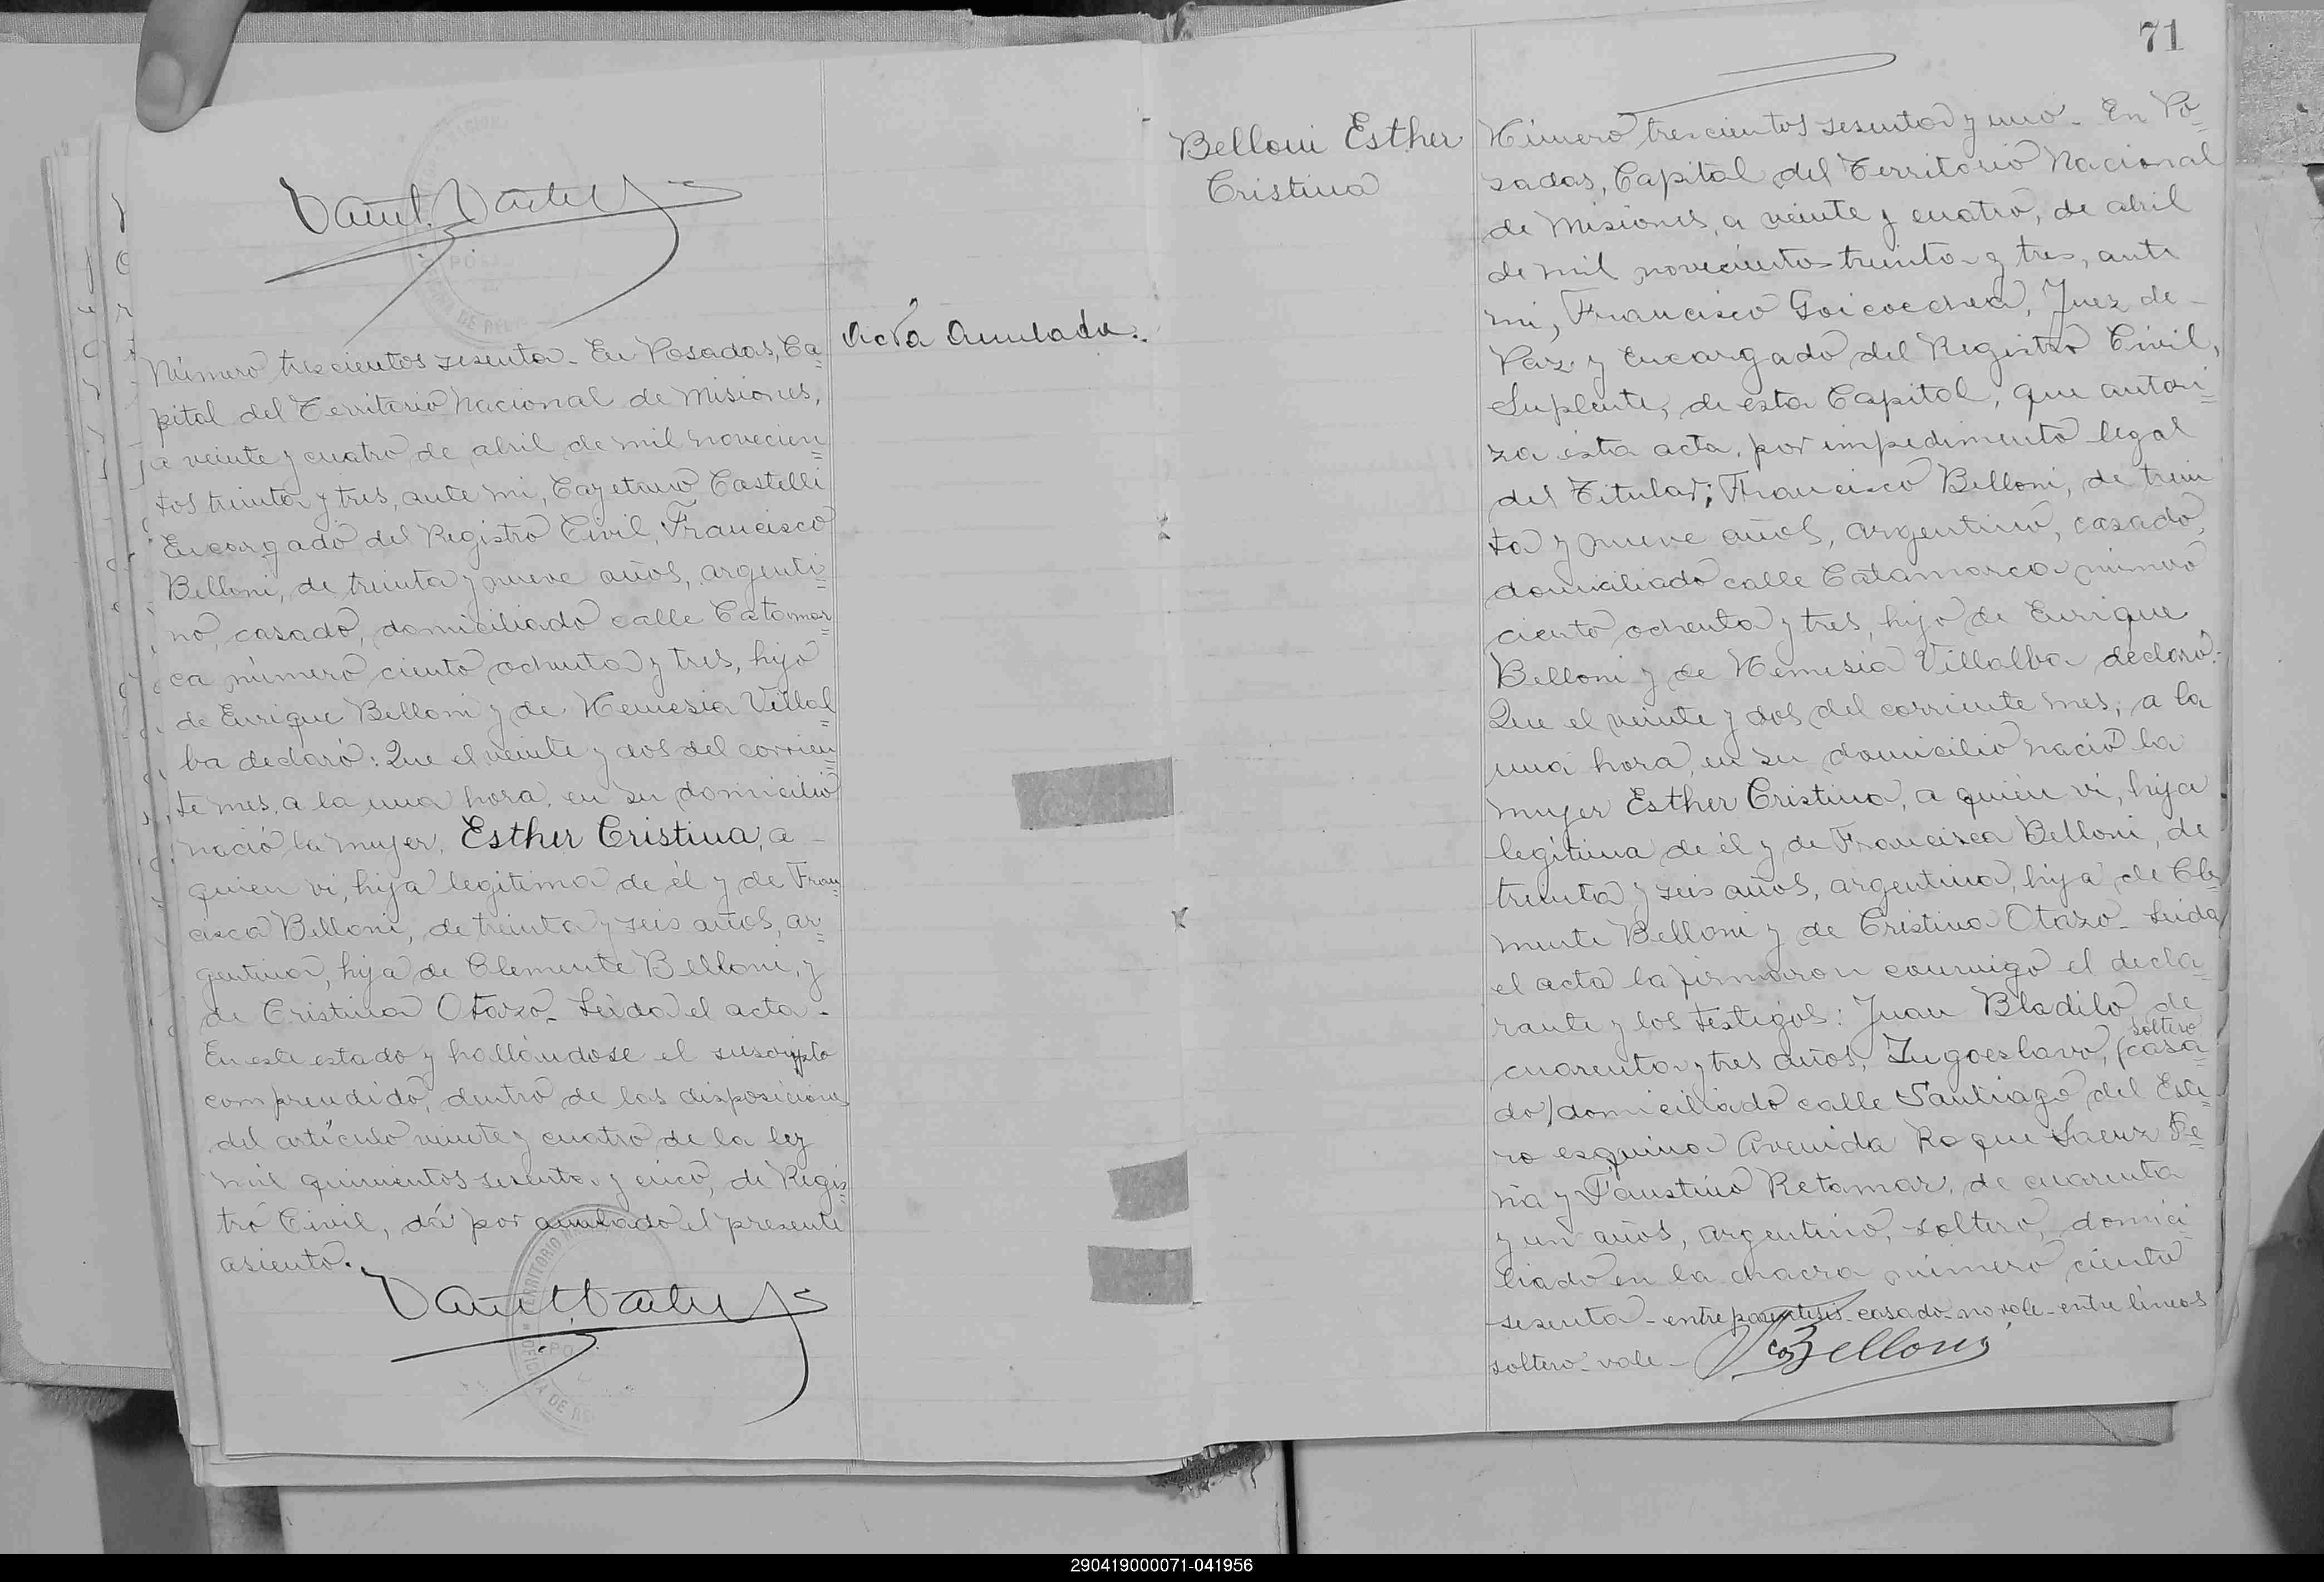 Número trescientos sesenta - En Posadas, Ca=
pital del Territorio Nacional de Misiones,
a veinte y cuatro de abril de mil novecien=
tos treinta y tres, ante mi, Cayetano Castelli
Encargado del Registro Civil, Francisco
Belloni, de treinta y nueve años, argenti=
no, casado, domiciliado calle Catamar=
ca número ciento ochenta y tres, hijo
de Enrique Belloni y de Nemesia Villal=
ba declaró: Que el veinte y dos del corrien=
te mes, a la una hora, en su domicilio
nació la mujer, Esther Cristina, a -
quien vi, hija legitima de él y de Fran=
cisca Belloni, de treinta y seis años, ar=
gentina, hija de Clemente Belloni, y
de Cristina Otazo - Leida el acta -
En este estado y hallándose el suscripto
comprendido, dentro de las disposiciones
del artículo veinte y cuatro de la ley
mil quinientos sesenta y cinco, de Regis=
tro Civil, dá por anulado el presente
asiento.
Acta Anulada.
71
Belloni Esther
Cristina
Número trescientos sesenta y uno - En Po=
sadas, Capital del Territorio Nacional
de Misiones, a veinte y cuatro, de abril
de mil novecientos treinta y tres, ante
mi, Francisco Goicoechea, Juez de -
Paz y Encargado del Registro Civil,
Suplente, de esta Capital, que autori=
za ésta acta, por impedimento legal
del Titular; Francisco Belloni, de trein
ta y nueve años, argentino, casado,
domiciliado calle Catamarca número
ciento ochenta y tres, hijo de Enrique
Belloni y de Nemesia Villalba declaró:
Que el veinte y dos del corriente mes, a la
una hora, en su domicilio nació la
mujer Esther Cristina, a quién vi, hija
legítima de él y de Francisca Belloni, de
treinta y seis años, argentina, hija de Cle=
mente Belloni y de Cristina Otazo - Leida
el acta la firmaron conmigo el decla=
rante y los testigos: Juan Bladilo, de
cuarenta y tres años, Yugoeslavo, soltero (casa=
do) domiciliado calle Santiago del Este=
ro esquina Avenida Roque Saenz Pe=
ña y Faustino Retamar, de cuarenta
y un años, argentino, soltero, domici=
liado en la chacra número ciento
sesenta - entre parentesis - casado - no vale - entre lineas
soltero - vale - Fco Belloni